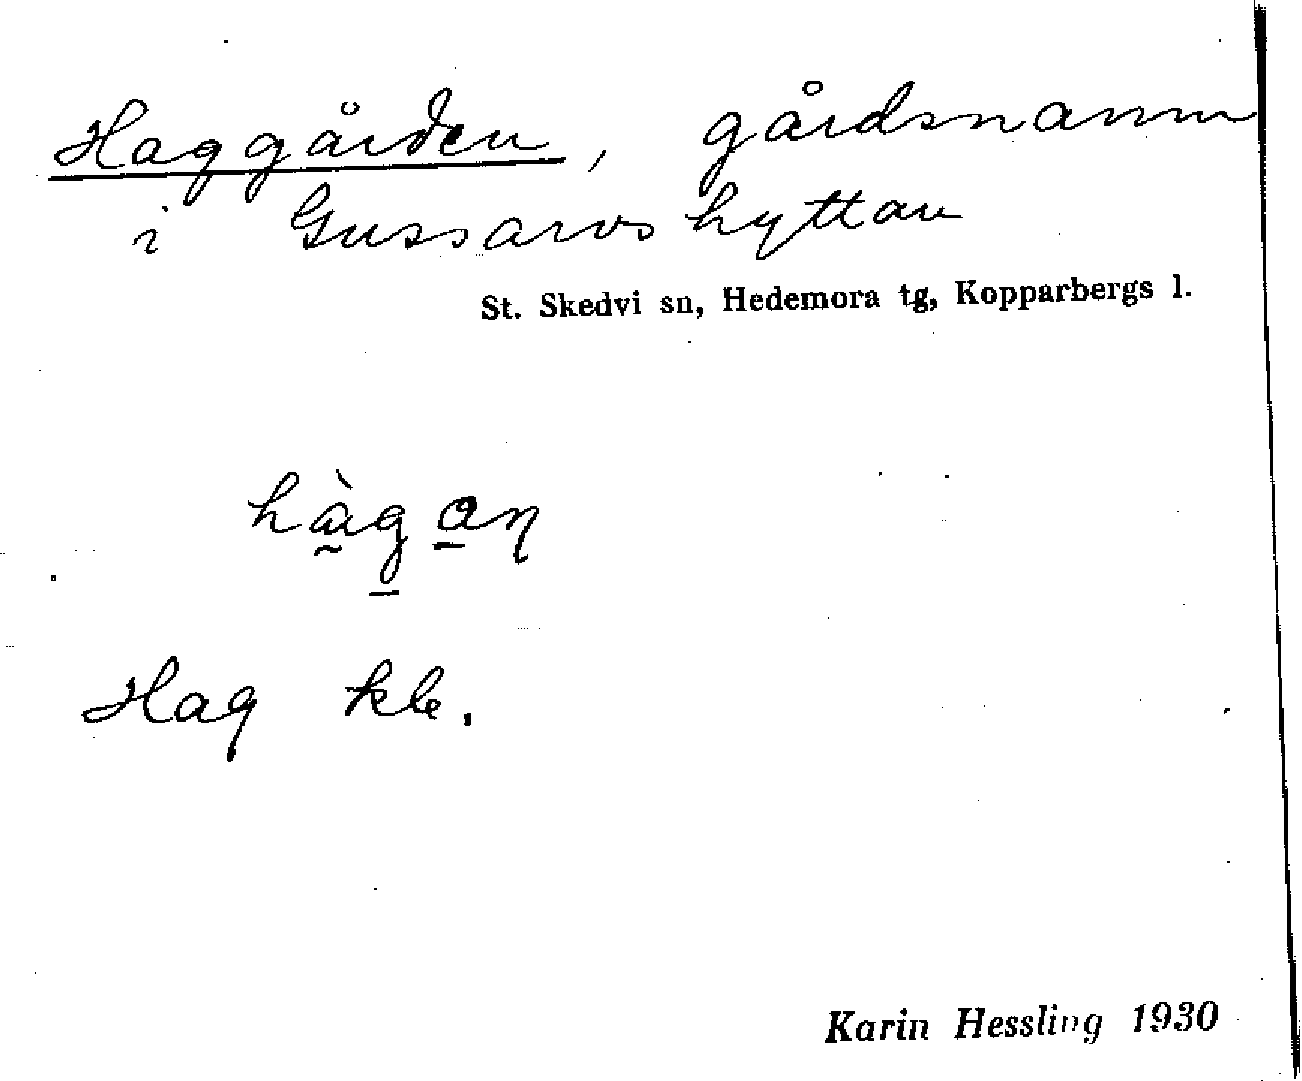 Haggården, gårdsnamn
i Gussarvshyttan
St. Skedvi sn, Hedemora tg, Kopparbergs l.
hàgan
Hag kle.
Karin Hessling 1930